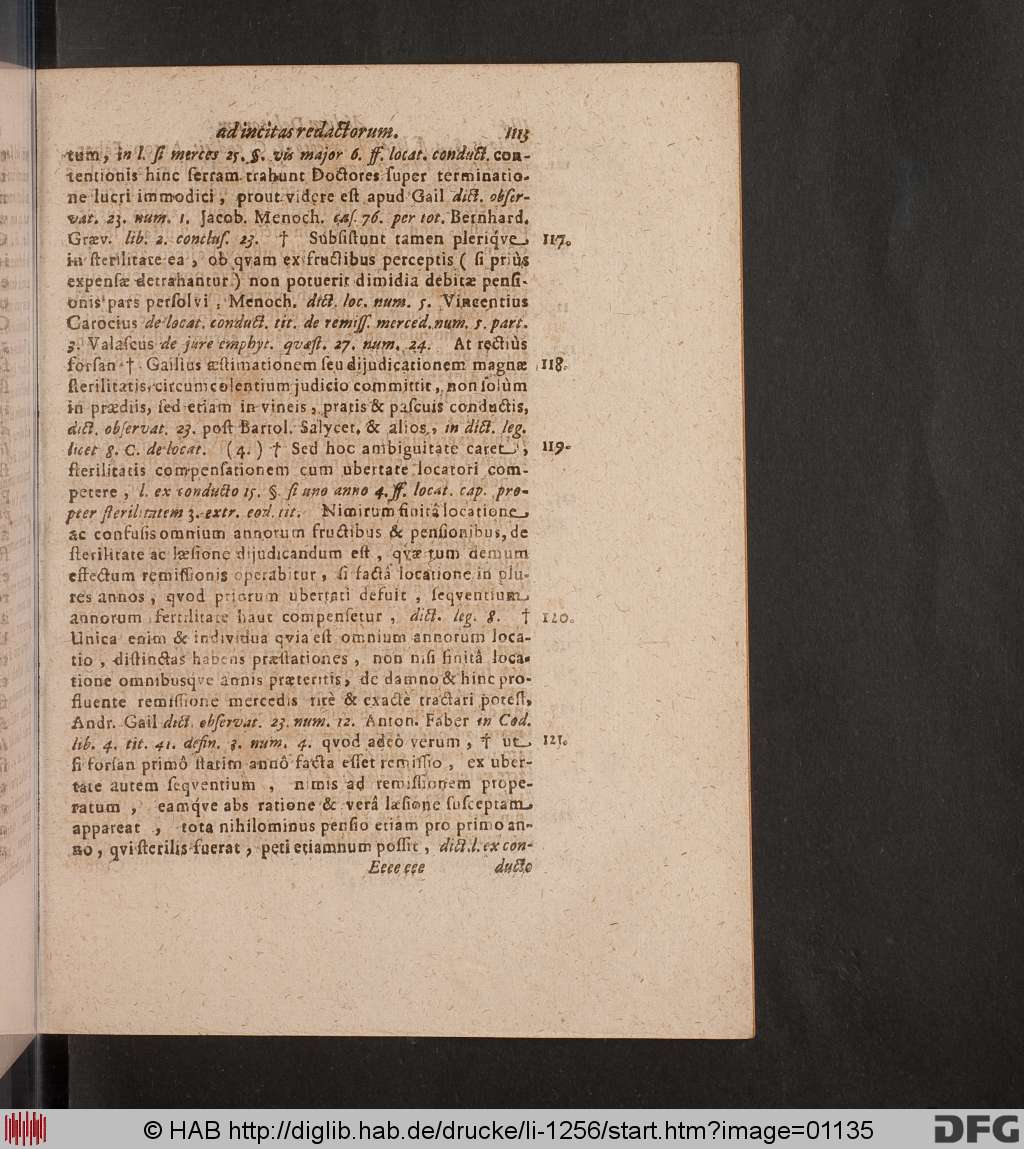 ad incitas redactorum. 1113
tum, in l. ſi merces 25. §. vis major 6. ff. locat. conduct. con-
tentionis hinc ſerram trahunt Doctores ſuper terminatio-
ne lucri immodici, prout videre eſt apud Gail dict. obſer-
vat. 23. num. 1. Jacob. Menoch. caſ. 76. per tot. Bernhard.
Græv. lib. 2. concluſ. 23. † Subſiſtunt tamen pleriq́ve 117.
in ſterilitate ea, ob qvam ex fructibus perceptis (ſi priùs
expenſæ detrahantur) non potuerit dimidia debitæ penſi-
onis pars perſolvi, Menoch. dict. loc. num. 5. Vincentius
Carocius de locat. conduct. tit. de remiſſ. merced. num. 5. part.
3. Valaſcus de jure emphyt. quæſt. 27. num. 24. At rectiùs
forſan † Gailius æſtimationem ſeu dijudicationem magnæ 118.
ſterilitatis, circumcolentium judicio committit, non ſolùm
in prædiis, ſed etiam in vineis, pratis & paſcuis conductis,
dict. obſervat. 23. poſt Bartol. Salycet. & alios, in dict. leg.
licet 8. C. de locat. (4.) † Sed hoc ambiguitate caret, 119.
ſterilitatis compenſationem cum ubertate locatori com-
petere, l. ex conducto 15. §. ſi uno anno 4. ff. locat. cap. pro-
pter ſterilitatem 3. extr. eod. tit. Nimirum finitâ locatione
ac confuſis omnium annorum fructibus & penſionibus, de
ſterilitate ac læſione dijudicandum eſt, qvæ tum demum
effectum remiſſionis operabitur, ſi factâ locatione in plu-
res annos, qvod priorum ubertati defuit, ſeqventium
annorum fertilitate haut compenſetur, dict. leg. 8. † 120.
Unica enim & individua qvia eſt omnium annorum loca-
tio, diſtinctas habens præſtationes, non niſi finitâ loca-
tione omnibusqve annis præteritis, de damno & hinc pro-
fluente remiſſione mercedis ritè & exactè tractari poteſt,
Andr. Gail dict. obſervat. 23. num. 12. Anton. Faber in Cod.
lib. 4. tit. 41. defin. 3. num. 4. qvod adeò verum, † ut 121.
ſi forſan primô ſtatim annô facta eſſet remiſſio, ex uber-
tate autem ſeqventium, nimis ad remiſſionem prope-
ratum, eamq́ve abs ratione & verâ læſione ſuſceptam
appareat, tota nihilominus penſio etiam pro primo an-
no, qvi ſterilis fuerat, peti etiamnum poſſit, dict. l. ex con-
Eeee eee ducto
© HAB http://diglib.hab.de/drucke/li-1256/start.htm?image=01135
DFG